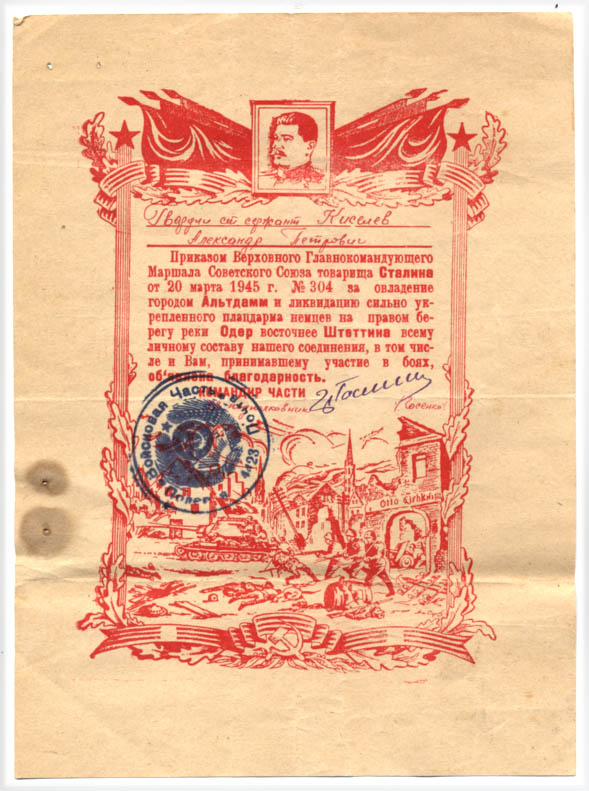 Гвардии ст сержант Киселев
Александр Петрович
Приказом Верховного Главнокомандующего
Маршала Советского Союза товарища Сталина
от 20 марта 1945 г. № 304 за овладение
городом Альтдамм и ликвидацию сильно ук-
репленного плацдарма немцев на правом бе-
регу реки Одер восточнее Штеттина всему
личному составу нашего соединения, в том чис-
ле и Вам, принимавшему участие в боях,
об‘явлена благодарность.
КОМАНДИР ЧАСТИ
Войсковая Часть Полевая Почта
Otto Kirhkn